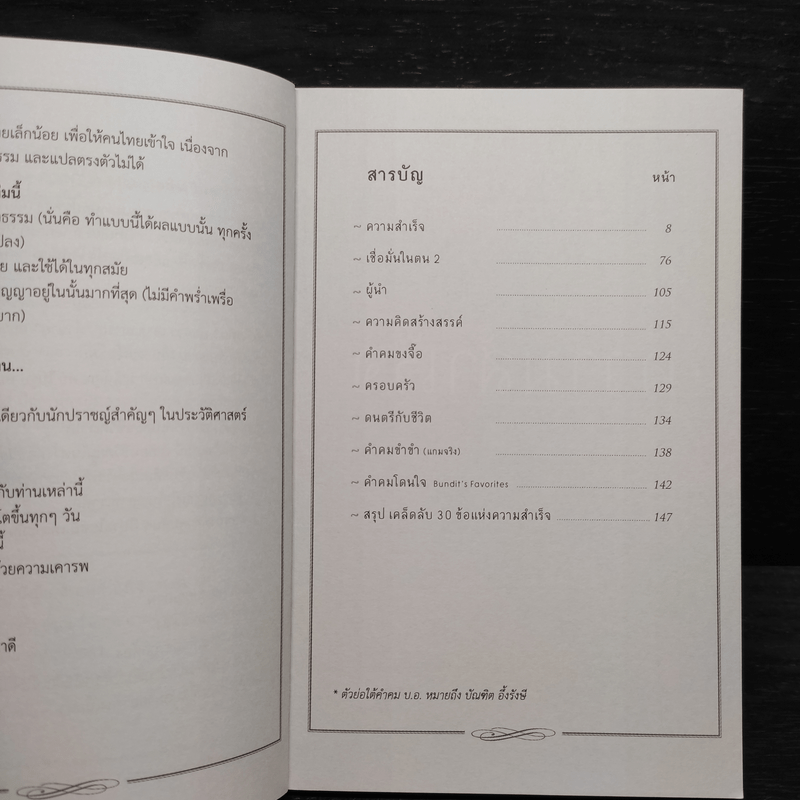 ยเล็กน้อย เพื่อให้คนไทยเข้าใจ เนื่องจาก
รรม และแปลตรงตัวไม่ได้
มนี้
ธรรม (นั่นคือ ทำแบบนี้ได้ผลแบบนั้น ทุกครั้ง
ปลง)
ย และใช้ได้ในทุกสมัย
ัญญาอยู่ในนั้นมากที่สุด (ไม่มีคำพร่ำเพรื่อ
มาก)
น...
เดียวกับนักปราชญ์สำคัญๆ ในประวัติศาสตร์
กับท่านเหล่านี้
โตขึ้นทุกๆ วัน
นี้
ด้วยความเคารพ
าดี
สารบัญ หน้า
~ ความสำเร็จ 8
~ เชื่อมั่นในตน 2 76
~ ผู้นำ 105
~ ความคิดสร้างสรรค์ 115
~ คำคมขงจื๊อ 124
~ ครอบครัว 129
~ ดนตรีกับชีวิต 134
~ คำคมขำขำ (แกมจริง) 138
~ คำคมโดนใจ Bundit's Favorites 142
~ สรุป เคล็ดลับ 30 ข้อแห่งความสำเร็จ 147
* ตัวย่อใต้คำคม บ.อ. หมายถึง บัณฑิต อึ้งรังษี